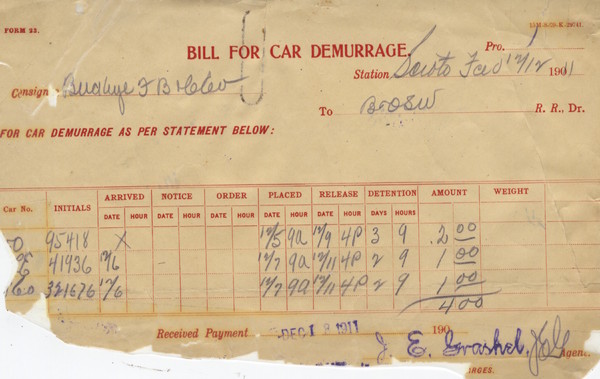 FORM 23.
BILL FOR CAR DEMURRAGE.
Pro.
Station Scioto 12/12 1911
Consign
To B&OSW R. R., Dr.
FOR CAR DEMURRAGE AS PER STATEMENT BELOW:
Car No. INITIALS ARRIVED NOTICE ORDER PLACED RELEASE DETENTION AMOUNT WEIGHT
DATE HOUR DATE HOUR DATE HOUR DATE HOUR DATE HOUR DAYS HOURS
95418 X 12/5 9a 12/9 4P 3 9 2 00
41936 12/6 - 12/7 9a 12/11 4P 2 9 1 00
321676 12/6 12/7 9a 12/11 4P 2 9 1 00
4 00
Received Payment DEC 18 1911 190
J. E. Agent.
RGES.